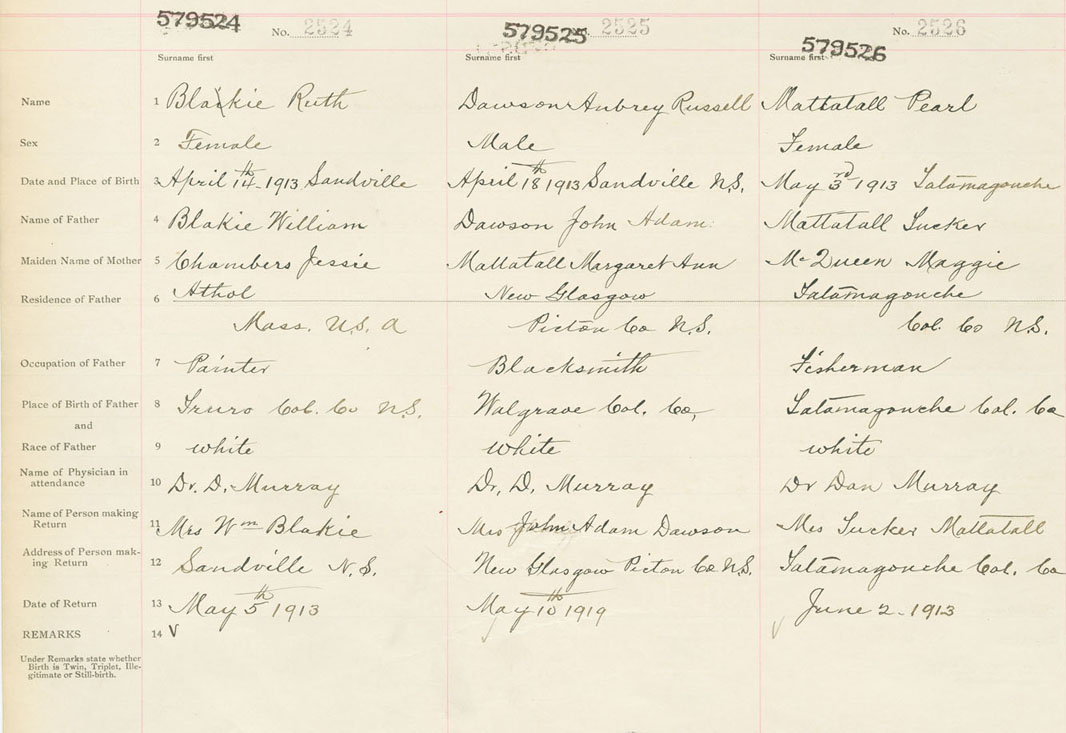 579524 No. 2524 579525 No. 2525 579526 No. 2526
Surname first Surname first Surname first
Name 1 Blackie Ruth Dawson Aubrey Russell Mattatall Pearl
Sex 2 Female Male Female
Date and Place of Birth 3 April 14th 1913 Sandville April 18th 1913 Sandville N.S. May 3rd 1913 Tatamagouche
Name of Father 4 Blakie William Dawson John Adam. Mattatall Tucker
Maiden Name of Mother 5 Chambers Jessie Mattatall Margaret Ann McQueen Maggie
Residence of Father 6 Athol New Glasgow Tatamagouche
Mass. U.S. A Picton Co N.S. Col. Co N.S.
Occupation of Father 7 Painter Blacksmith Fisherman
Place of Birth of Father 8 Truro Col. Co N.S. Walgrave Col. Co, Tatamagouche Col. Co
and
Race of Father 9 white white white
Name of Physician in
attendance 10 Dr. D. Murray Dr. D. Murray Dr Dan Murray
Name of Person making
Return 11 Mrs Wm Blakie Mrs John Adam Dawson Mrs Tucker Mattatall
Address of Person mak-
ing Return 12 Sandville N.S. New Glasgow Picton Co N.S. Tatamagouche Col. Co
Date of Return 13 May 5th 1913 May 10th 1919 June 2 - 1913
REMARKS 14 V
Under Remarks state whether
Birth is Twin, Triplet, Ille-
gitimate or Still-birth.